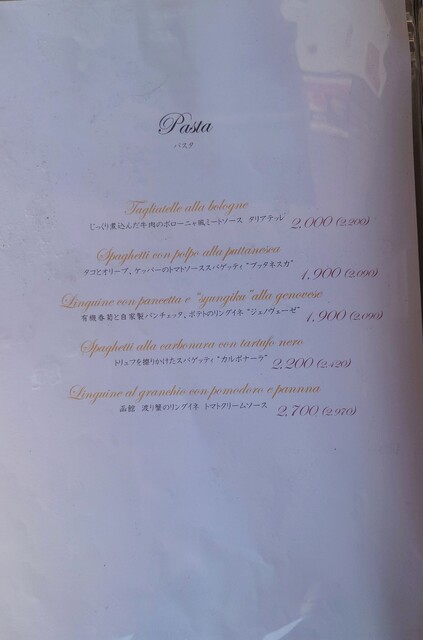 Pasta
パスタ
Tagliatelle alla bologne
じっくり煮込んだ牛肉のボローニャ風ミートソース タリアテッレ 2,000 (2,200)
Spaghetti con polpo alla puttanesca
タコとオリーブ、ケッパーのトマトソーススパゲッティ "プッタネスカ" 1,900 (2,090)
Linguine con pancetta e "syungiku" alla genovese
有機春菊と自家製パンチェッタ、ポテトのリングイネ "ジェノヴェーゼ" 1,900 (2,090)
Spaghetti alla carbonara con tartufo nero
トリュフを擦りかけたスパゲッティ "カルボナーラ" 2,200 (2,420)
Linguine al granchio con pomodoro e pannna
函館 渡り蟹のリングイネ トマトクリームソース 2,700 (2,970)